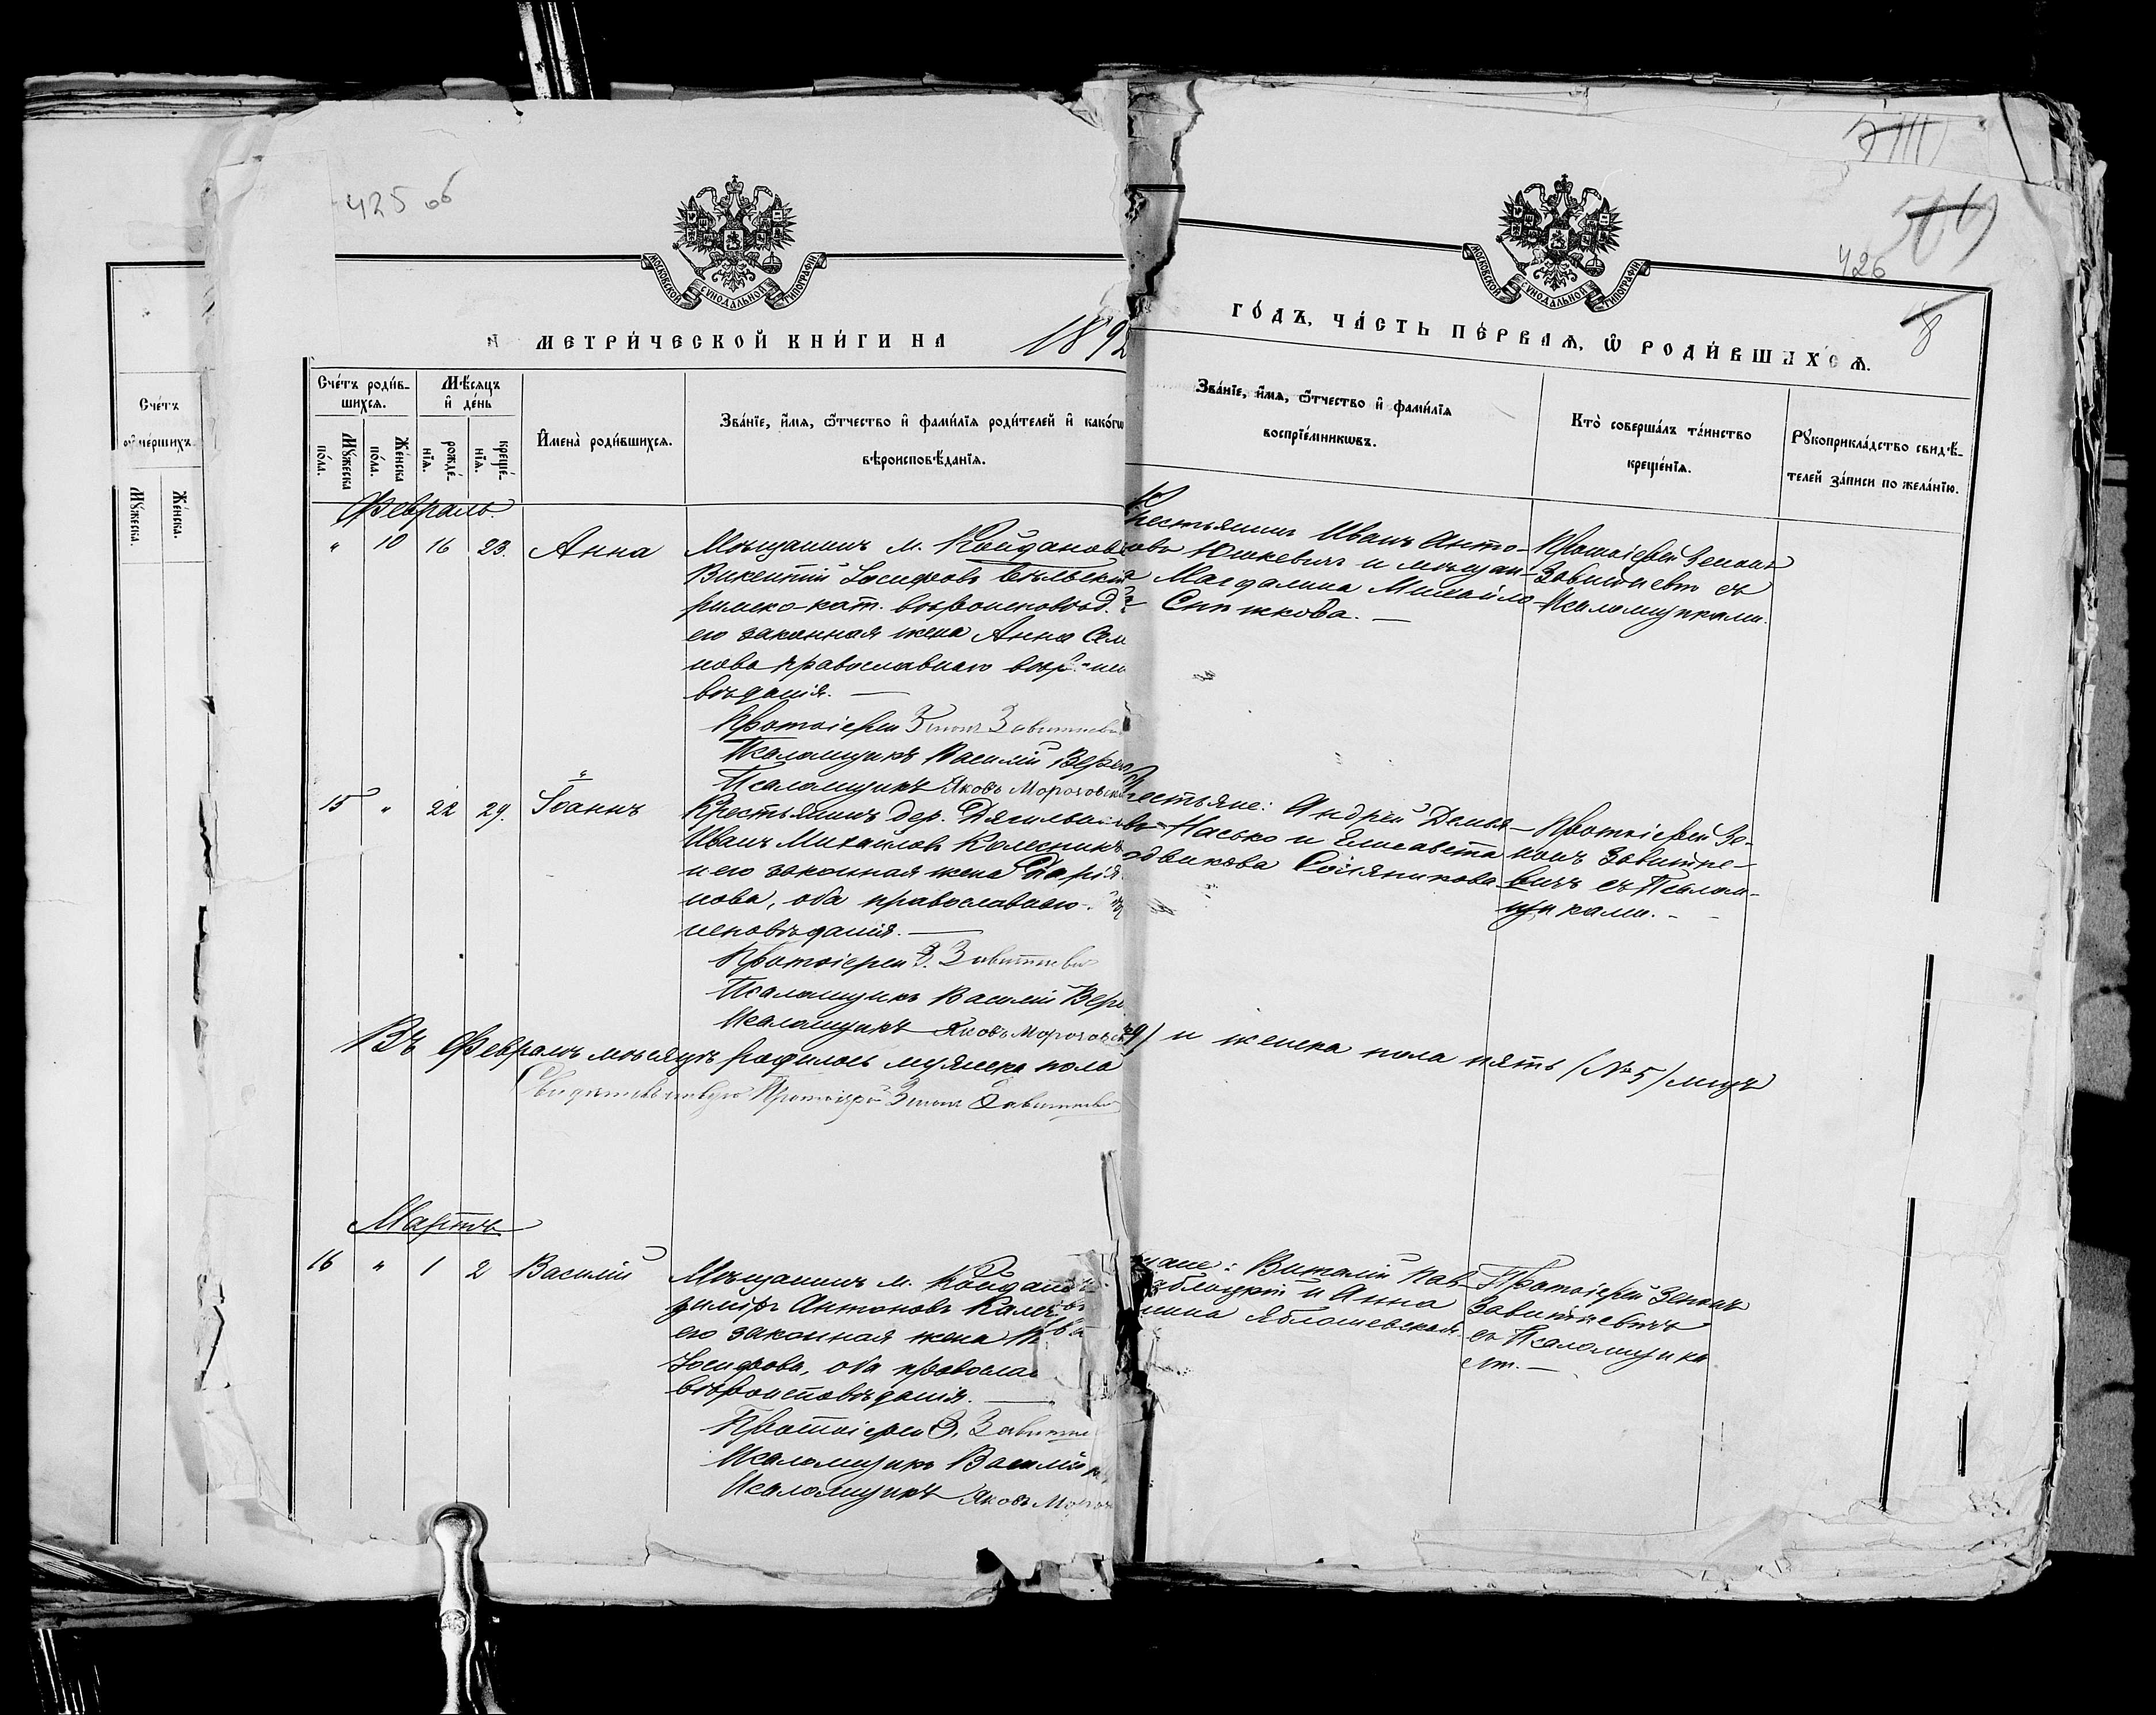 425 об
426
8
МОСКОВСКОЙ СУНОДАЛЬНОЙ ТИПОГРАФІИ
МОСКОВСКОЙ СУНОДАЛЬНОЙ ТИПОГРАФІИ
МЕТРИ́ЧЕСКОЙ КНИ́ГИ НА 1892
ГО́ДЪ, ЧА́СТЬ ПЕ́РВАѦ, Ѿ РОДИ́ВШИХСѦ.
Сче́тъ ѹ҆ме́ршихъ.
Мꙋ́жеска.
Же́нска.
Сче́тъ роди́вшихсѧ.
Мꙋ́жеска по́ла.
Же́нска по́ла.
Мѣ́сѧцъ и҆ де́нь
рожде́нїѧ.
креще́нїѧ.
И҆мена̀ роди́вшихсѧ.
Зва́нїе, и҆́мѧ, ѻ҆́тчество и҆ фамі́лїѧ роди́телей и҆ како́гѡ
вѣроисповѣ́данїѧ.
Зва́нїе, и҆́мѧ, ѻ҆́тчество и҆ фамі́лїѧ
воспрїе́мникѡвъ.
Кто̀ соверша́лъ та́инство
креще́нїѧ.
Рꙋкоприкла́дство свидѣ́-
телей за́писи по жела́нїю.
Февраль.
" 10 16 23. Анна
Мѣщанинъ м. Койданов
Викентій Іосифовъ Бѣльскій
римско-кат. вѣроисповѣд.
его законная жена Анна Сем
нова православнаго вѣр. ис
вѣданія. —
Протоіерей Зенонъ Завитневи
Псаломщикъ Василій Вер
Псаломщикъ Яковъ Морозовск
Крестьянинъ Иванъ Анто-
овъ Юшкевичъ и мѣщан-
Магдалина Михайло-
Протоіерей Зенонъ
Завитневичъ съ
Псаломщиками.
15 " 22 29. Іоаннъ
Крестьянинъ дер.
Иванъ Михаиловъ Колесникъ
и его законная жена Марія
нова, оба православнаго
исповѣданія. —
Протоіерей З. Завитневи
Псаломщикъ Василій Вер
Псаломщикъ Яковъ Морозовск
рестьяне: Андрей Демья-
овъ Насько и Елисавета
Протоіерей Зе-
нонъ Завитне-
вичъ съ Псалом-
щиками. -
Въ Февралѣ мѣсяцѣ родилось мужеска пола
9) и женска пола пять (№ 5) лицъ
Свидѣтельствую Протоіерей Зенонъ Завитневи
Мартъ
16 " 1 2 Василій
Мѣщанинъ м. Койдано
диміръ Антоновъ
его законная жена
Іосифова, оба правосла
вѣроисповѣданія. —
Протоіерей З. Завитне
Псаломщикъ Василій
Псаломщикъ Яковъ Мороз
щане: Виталій Пав-
и Анна
Яблошевская.
Протоіерей Зенонъ
Завитневичъ
съ Псаломщика
ми. —